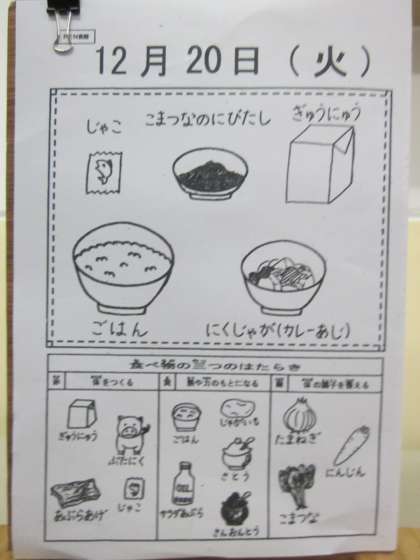 12月20日（火）
じゃこ
こまつなのにびたし
ぎゅうにゅう
ごはん
にくじゃが(カレーあじ)
食べ物の三つのはたらき
赤 体をつくる
黄 熱や力のもとになる
緑 体の調子を整える
ぎゅうにゅう
ぶたにく
あぶらあげ
じゃこ
ごはん
じゃがいも
さとう
OIL
サラダあぶら
さんおんとう
たまねぎ
にんじん
こまつな